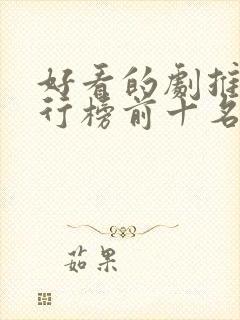 好看的劇推
行榜前十名
茹果